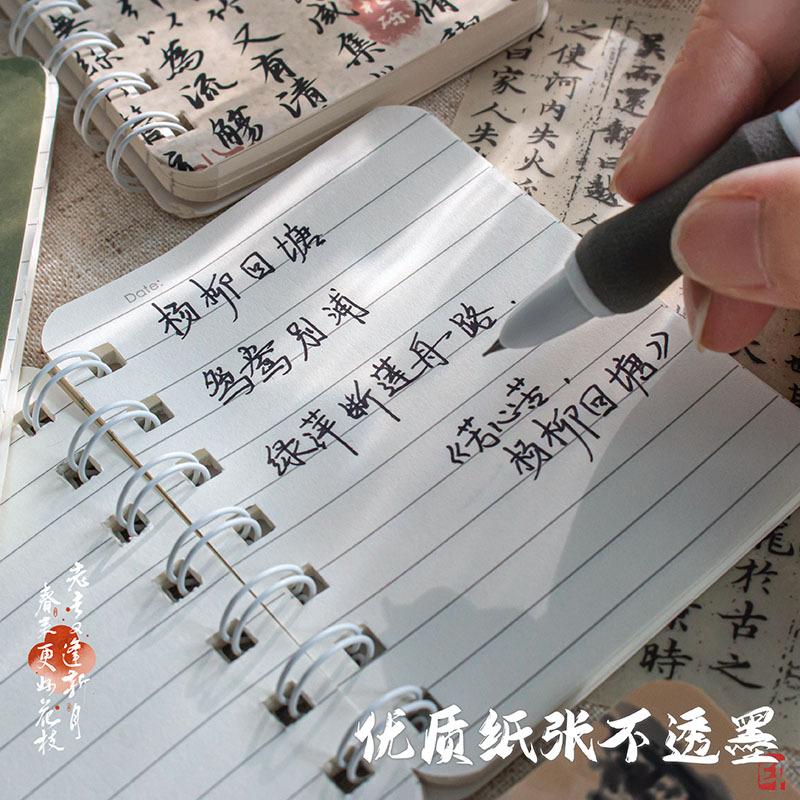 咸集
又有清
以為流
觴
吴而還報曰越人
之使河内失火
家人失火
Date:
杨柳回塘
鸳鸯别浦
绿萍断莲舟路.
《芳心苦.
杨柳回塘》
於古之
時
老去又逢新月
春来更好花枝
优质纸张不透墨